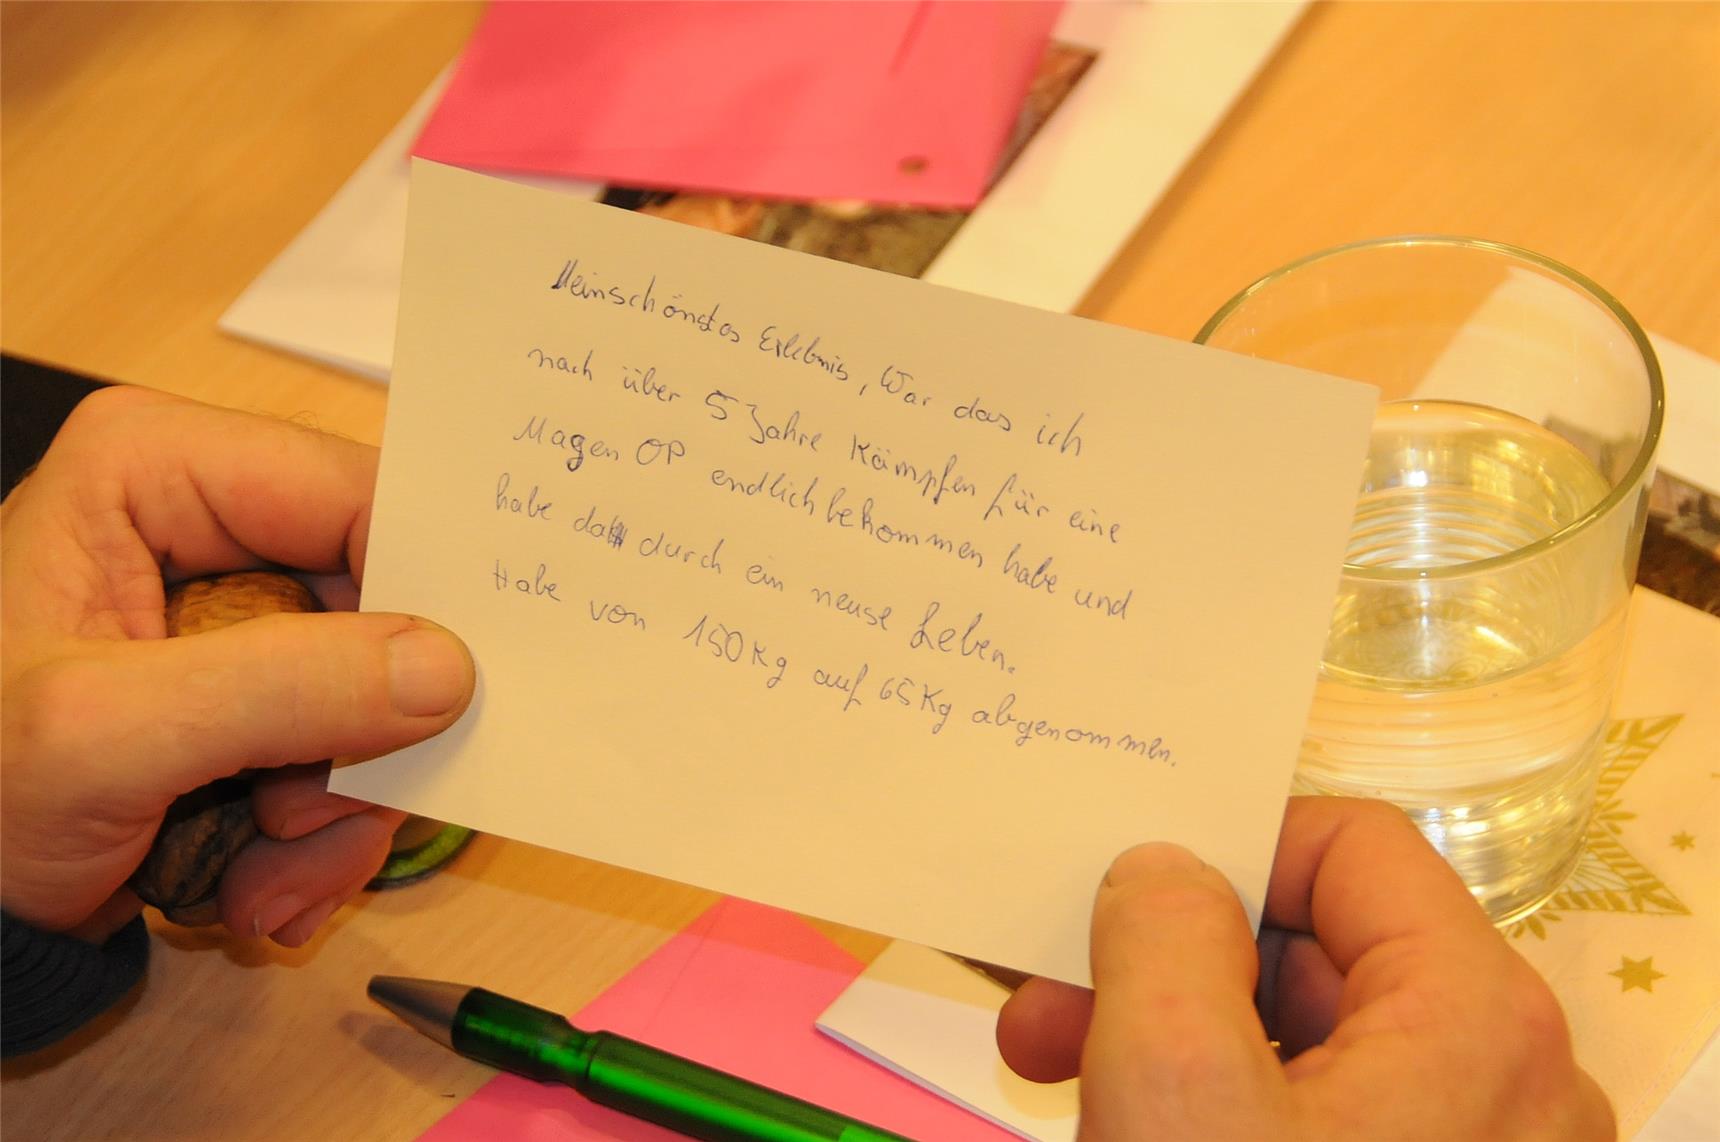 Meinschönstes Erlebnis, War das ich
nach über 5 Jahre Kämpfen für eine
Magen OP endlich bekommen habe und
habe da durch ein neuse Leben.
Habe von 150 Kg auf 65 Kg abgenommen.